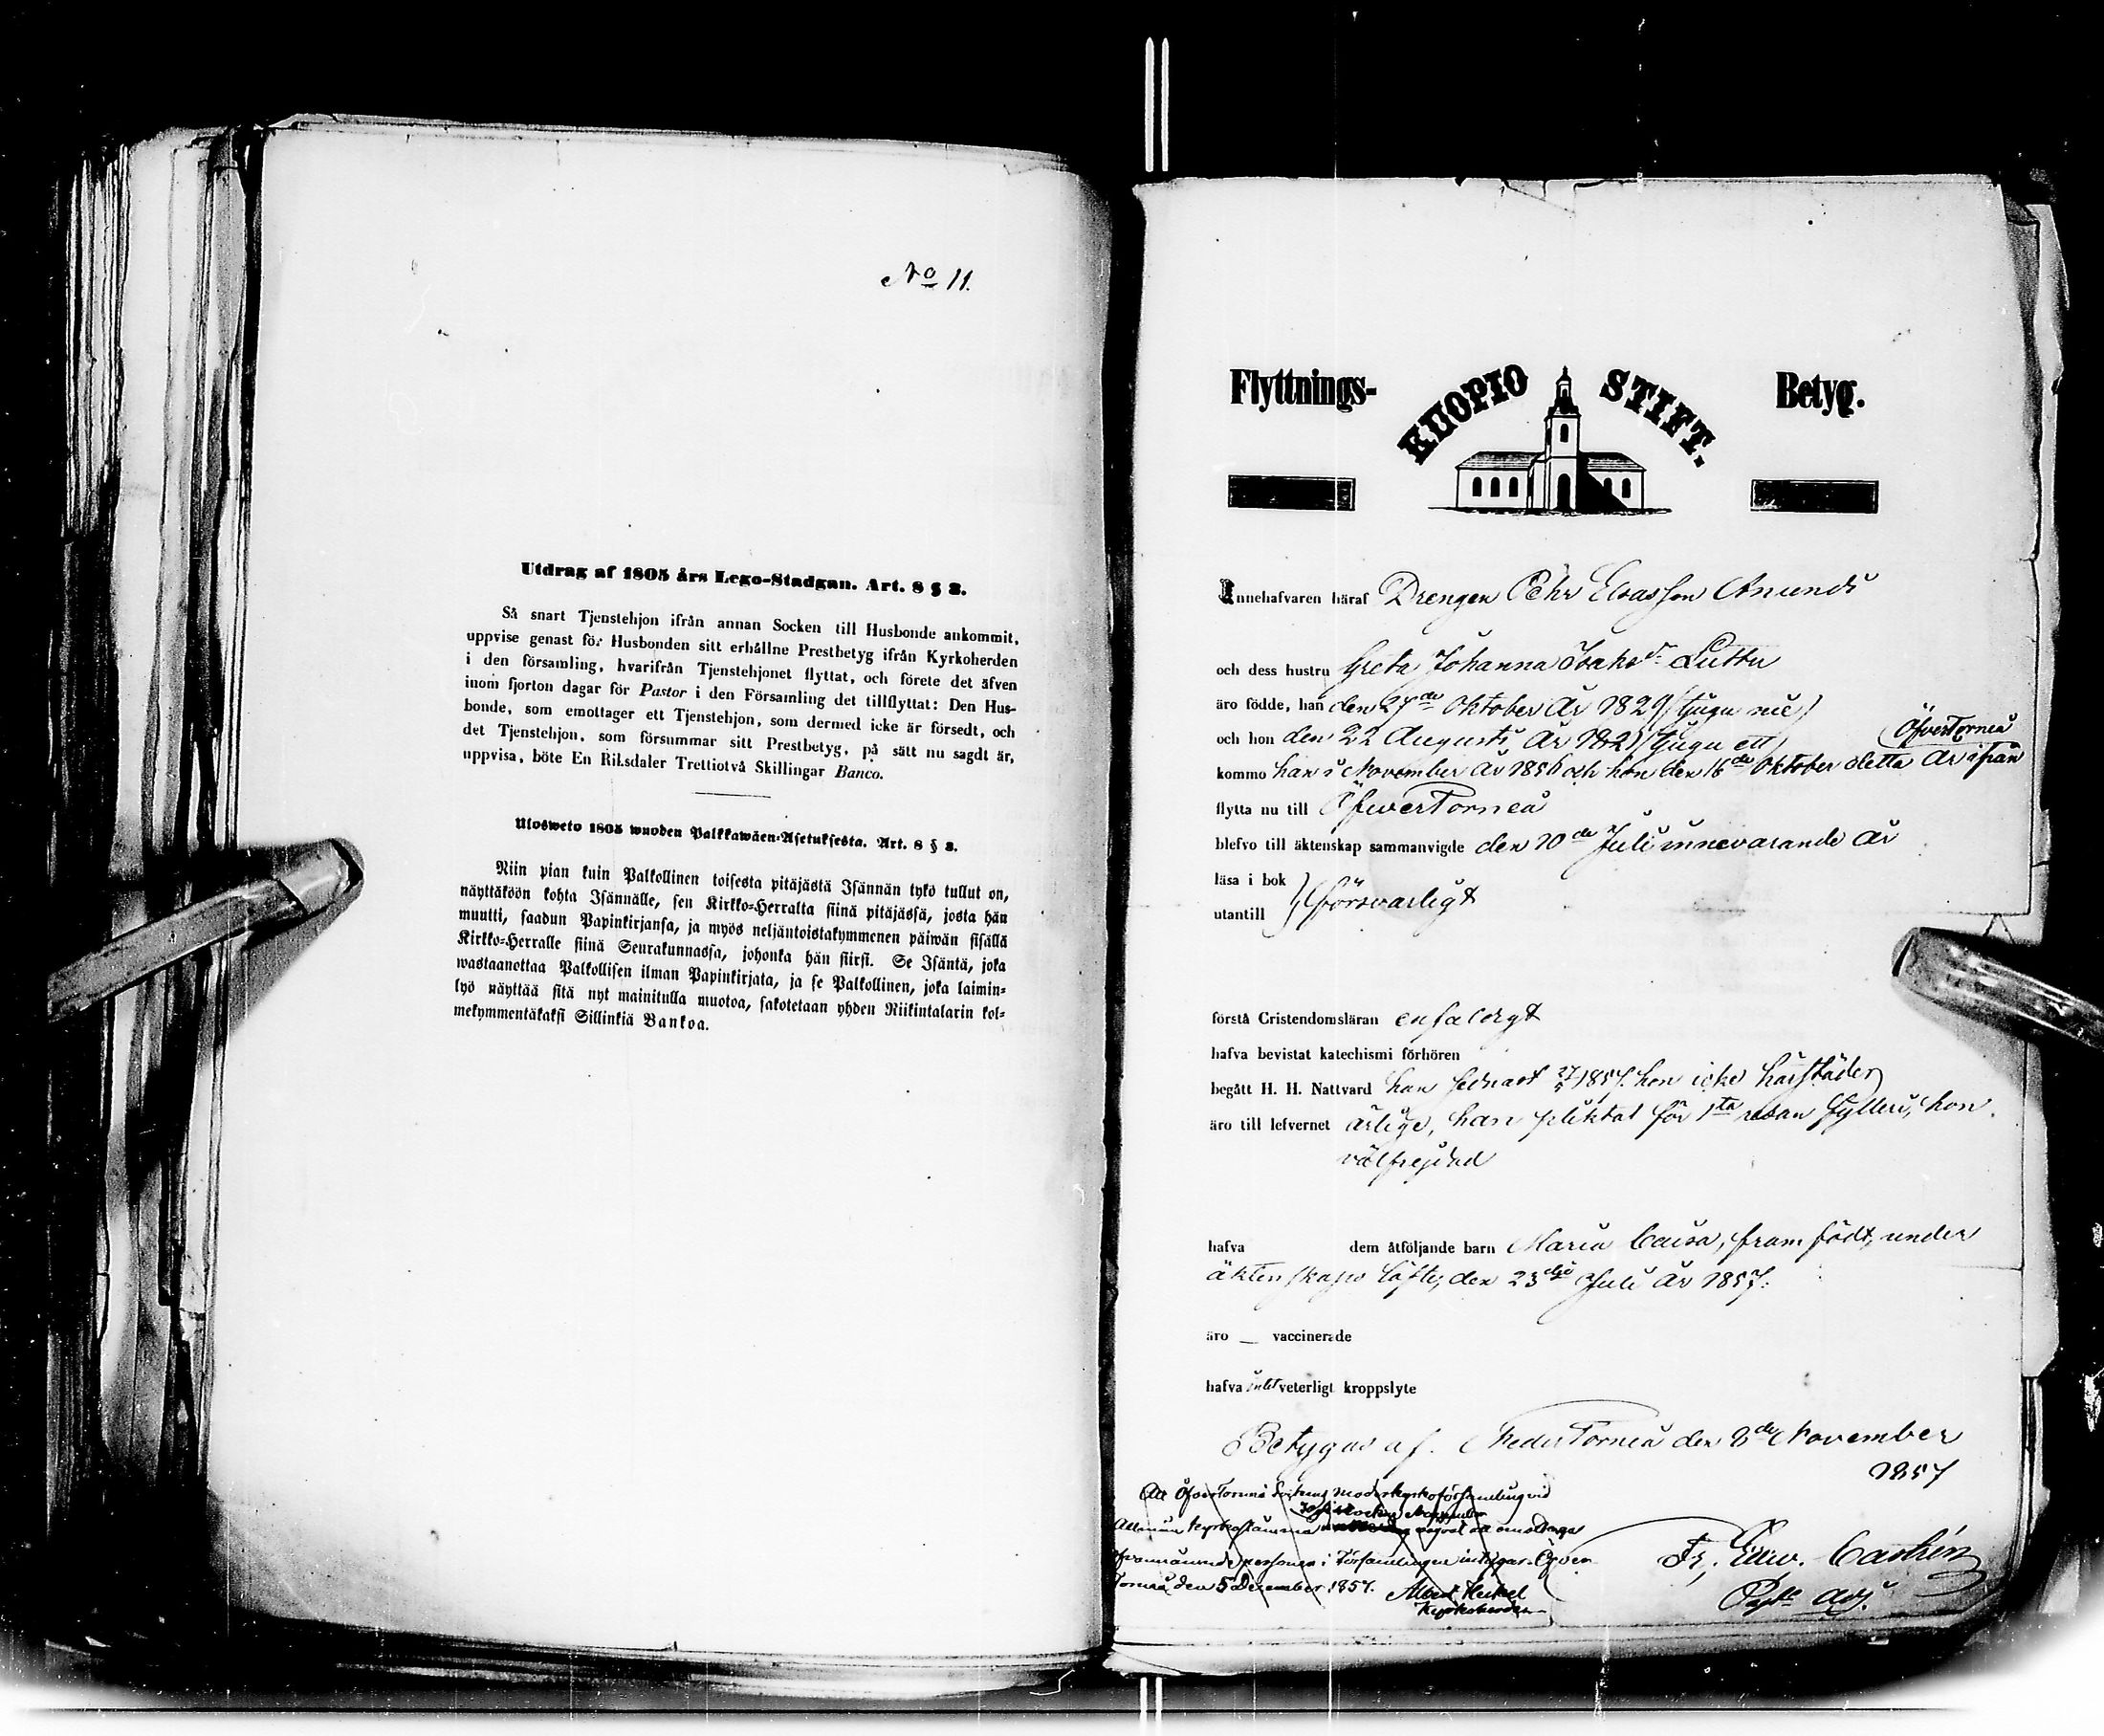 No 11.
Utdrag af 1805 års Lego-Stadgan. Art. 8 § 3.
Så snart Tjenstehjon ifrån annan Socken till Husbonde ankommit,
uppvise genast för Husbonden sitt erhållne Prestbetyg ifrån Kyrkoherden
i den församling, hvarifrån Tjenstehjonet flyttat, och förete det äfven
inom fjorton dagar för Pastor i den Församling det tillflyttat: Den Hus-
bonde, som emottager ett Tjenstehjon, som dermed icke är försedt, och
det Tjenstehjon, som försummar sitt Prestbetyg, på sätt nu sagdt är,
uppvisa, böte En Riksdaler Trettiotvå Skillingar Banco.
Ulosweto 1805 wuoden Palkkawäen-Asetuksesta. Art. 8 § 3.
Niin pian kuin Palkollinen toisesta pitäjästä Isännän tykö tullut on,
näyttäköön kohta Isännälle, sen Kirkko-Herralta siinä pitäjässä, josta hän
muutti, saadun Papinkirjansa, ja myös neljäntoistakymmenen päiwän sisällä
Kirkko-Herralle siinä Seurakunnassa, johonka hän siirsi. Se Isäntä, joka
wastaanottaa Palkollisen ilman Papinkirjata, ja se Palkollinen, joka laimin-
lyö näyttää sitä nyt mainitulla muotoa, sakotetaan yhden Riikintalarin kol-
mekymmentäkaksi Sillinkiä Bankoa.
Flyttnings- KUOPIO STIFT. Betyg.
Innehafvaren häraf Drengen Pehr Amunds
och dess hustru Greta Johanna Isaksdr Lutta
äro födde, han den 27de Oktober År 1829 (tjugu nie)
och hon den 22 Augusti År 1821 (tjugu ett) ÖfverTorneå
kommo han i November År 1856 och hon den 16de Oktober detta År ifrån
flytta nu till ÖfwerTorneå
blefvo till äktenskap sammanvigde den 20de Juli innevarande År
läsa i bok
utantill } försvarligt
förstå Cristendomsläran enfaldigt
hafva bevistat katechismi förhören
begått H. H. Nattvard han sednast 27/ 1857. hon icke härstädes
äro till lefvernet ärlige, han pliktat för 1sta resan fylleri, hon
välfrejdad
hafva dem åtföljande barn Maria Caisa, framfödt, under
äktenskaps löfte, den 23dje Juli År 1857.
äro — vaccinerade
hafva intet veterligt kroppslyte
Betygas af. NederTorneå den 8de November
1857
Att ÖfverTorneå Sockens Moderkyrkoförsamling vid
Allmän Kyrkostämma att emottaga
ofvannämnde personer i Församlingen intygar. Öfver
Torneå den 5 December 1857. Albert Heikel
Kyrkoherde
Fr. Edw. Castrén
Past. Adj.